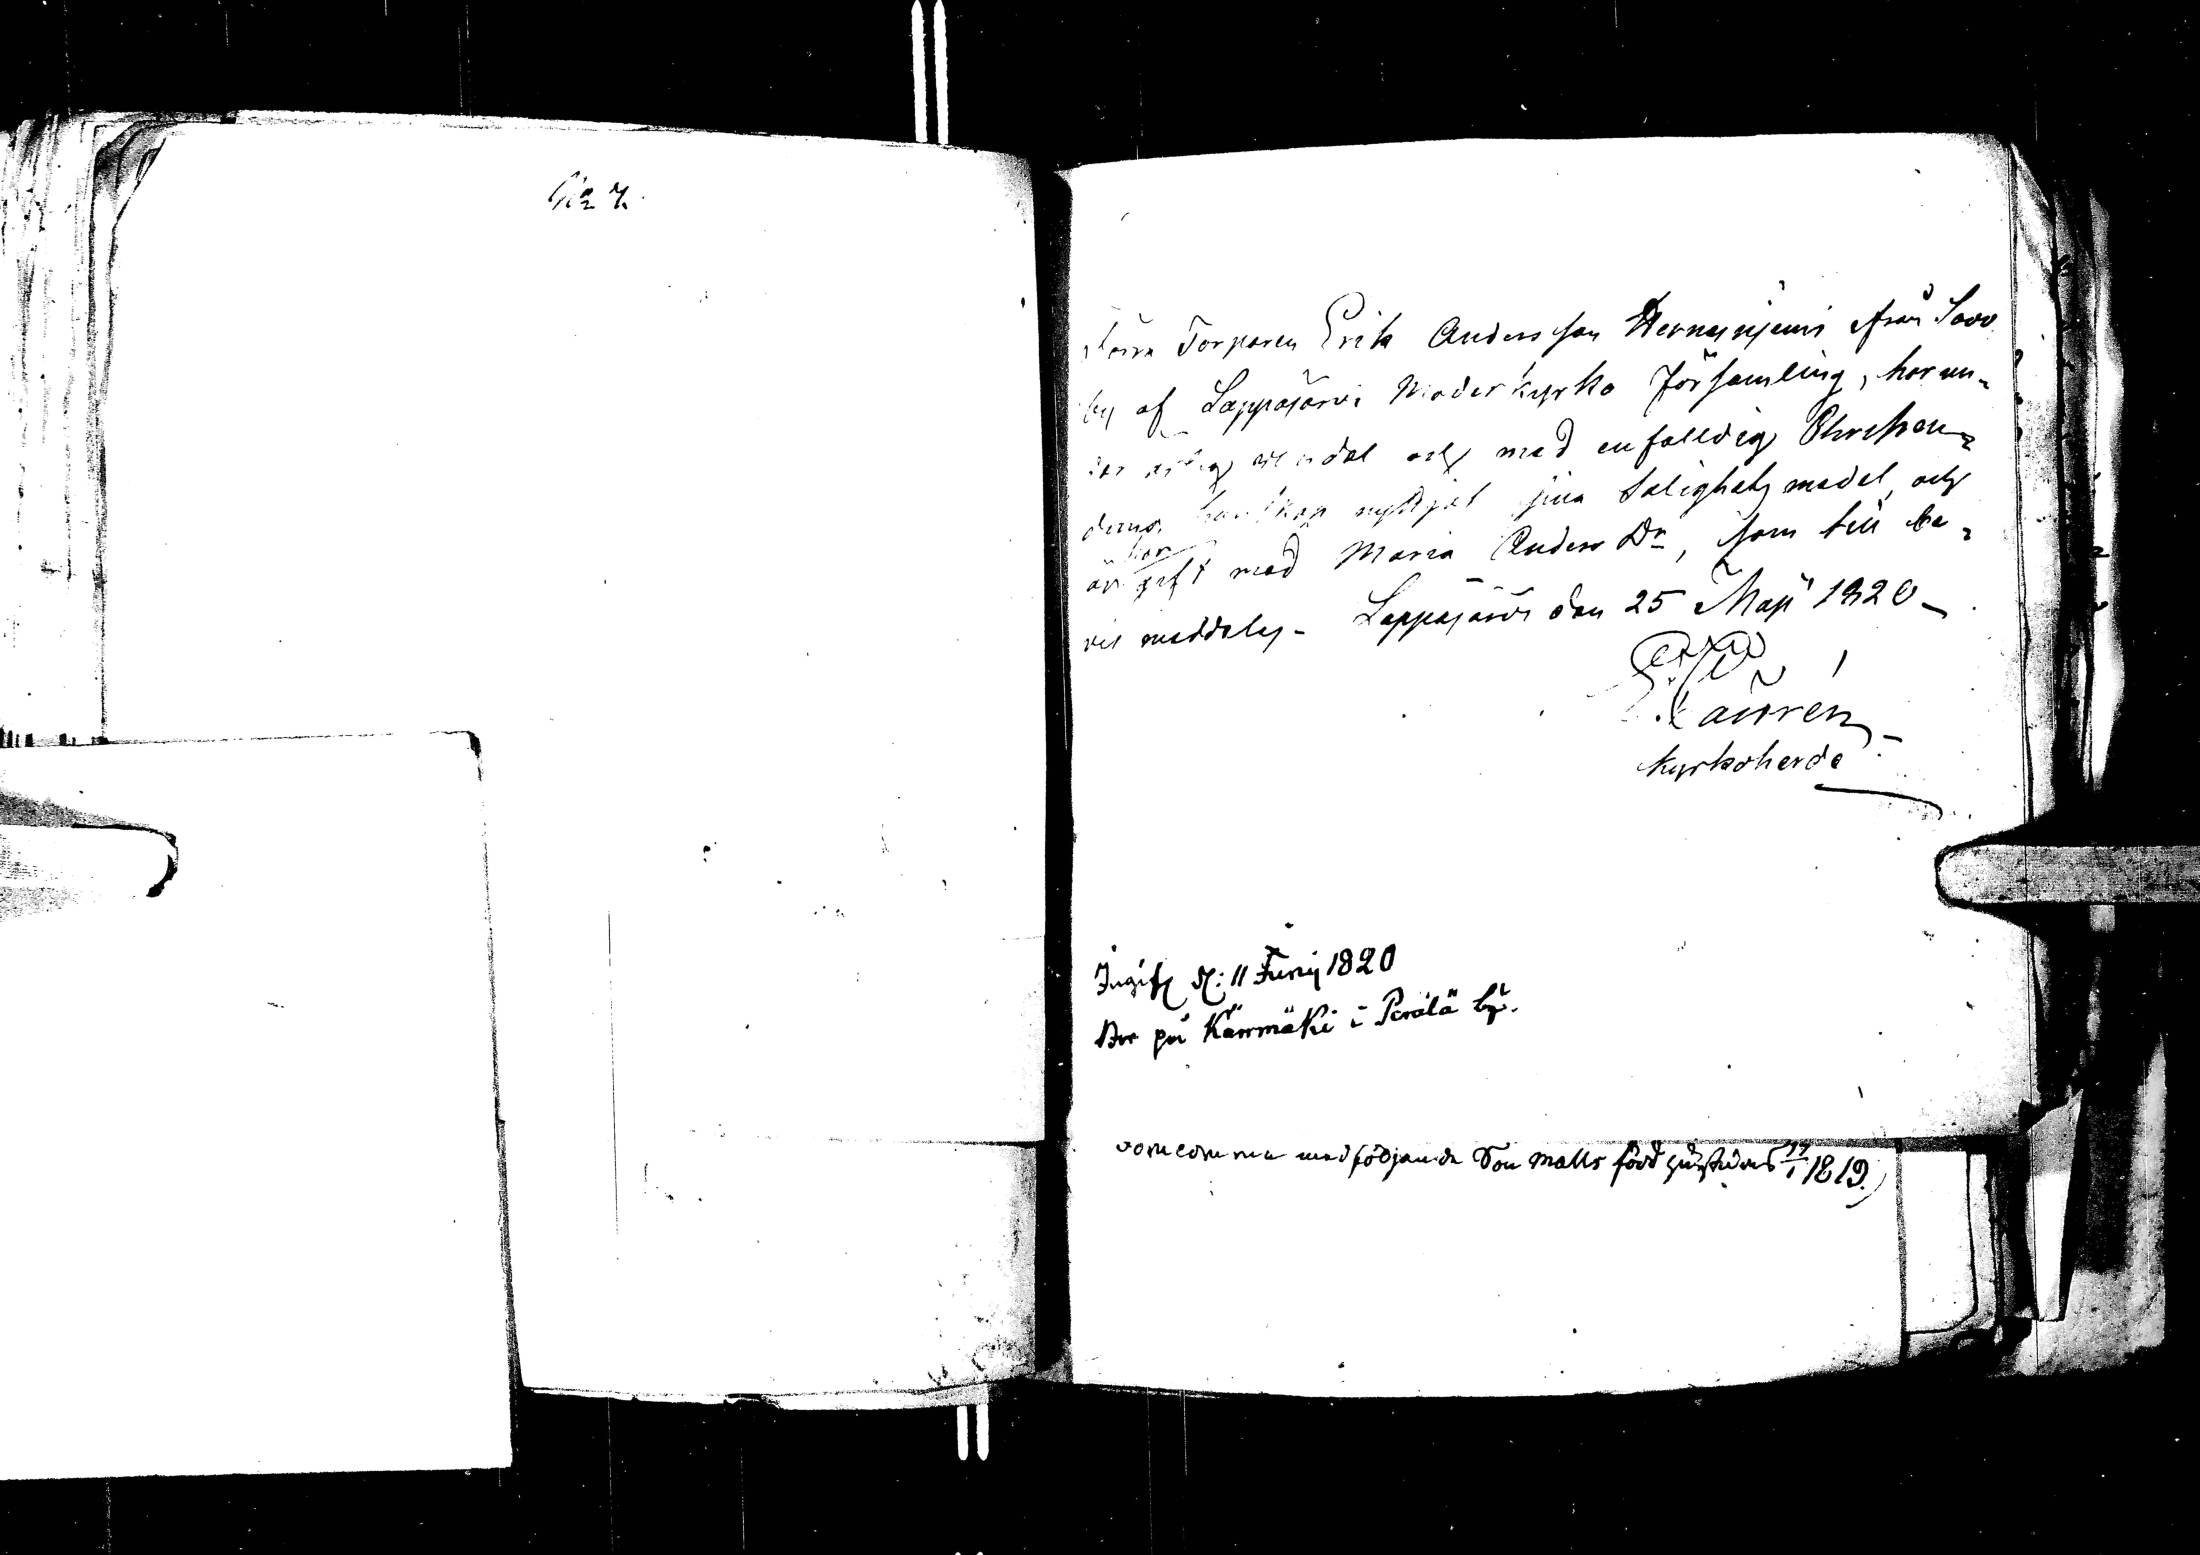 No 7.
Förra Torparen Erik Andersson Hernesniemi ifrån Savo
by af Lappajärvi Moderkyrko församling, har un-
der ärlig vandel och med enfalldig Christen-
doms kunskap nyttjat sina Salighets medel, och
är han gift med Maria Anders Dr, som till be-
vis meddelas. Lappajärvi den 25 Maji 1820
Laurén
Kyrkoherde
Ingifs d: 11 Junij 1820
Bor på Kärrmäki i Perälä by.
medföljande Son Matts född 1819.)